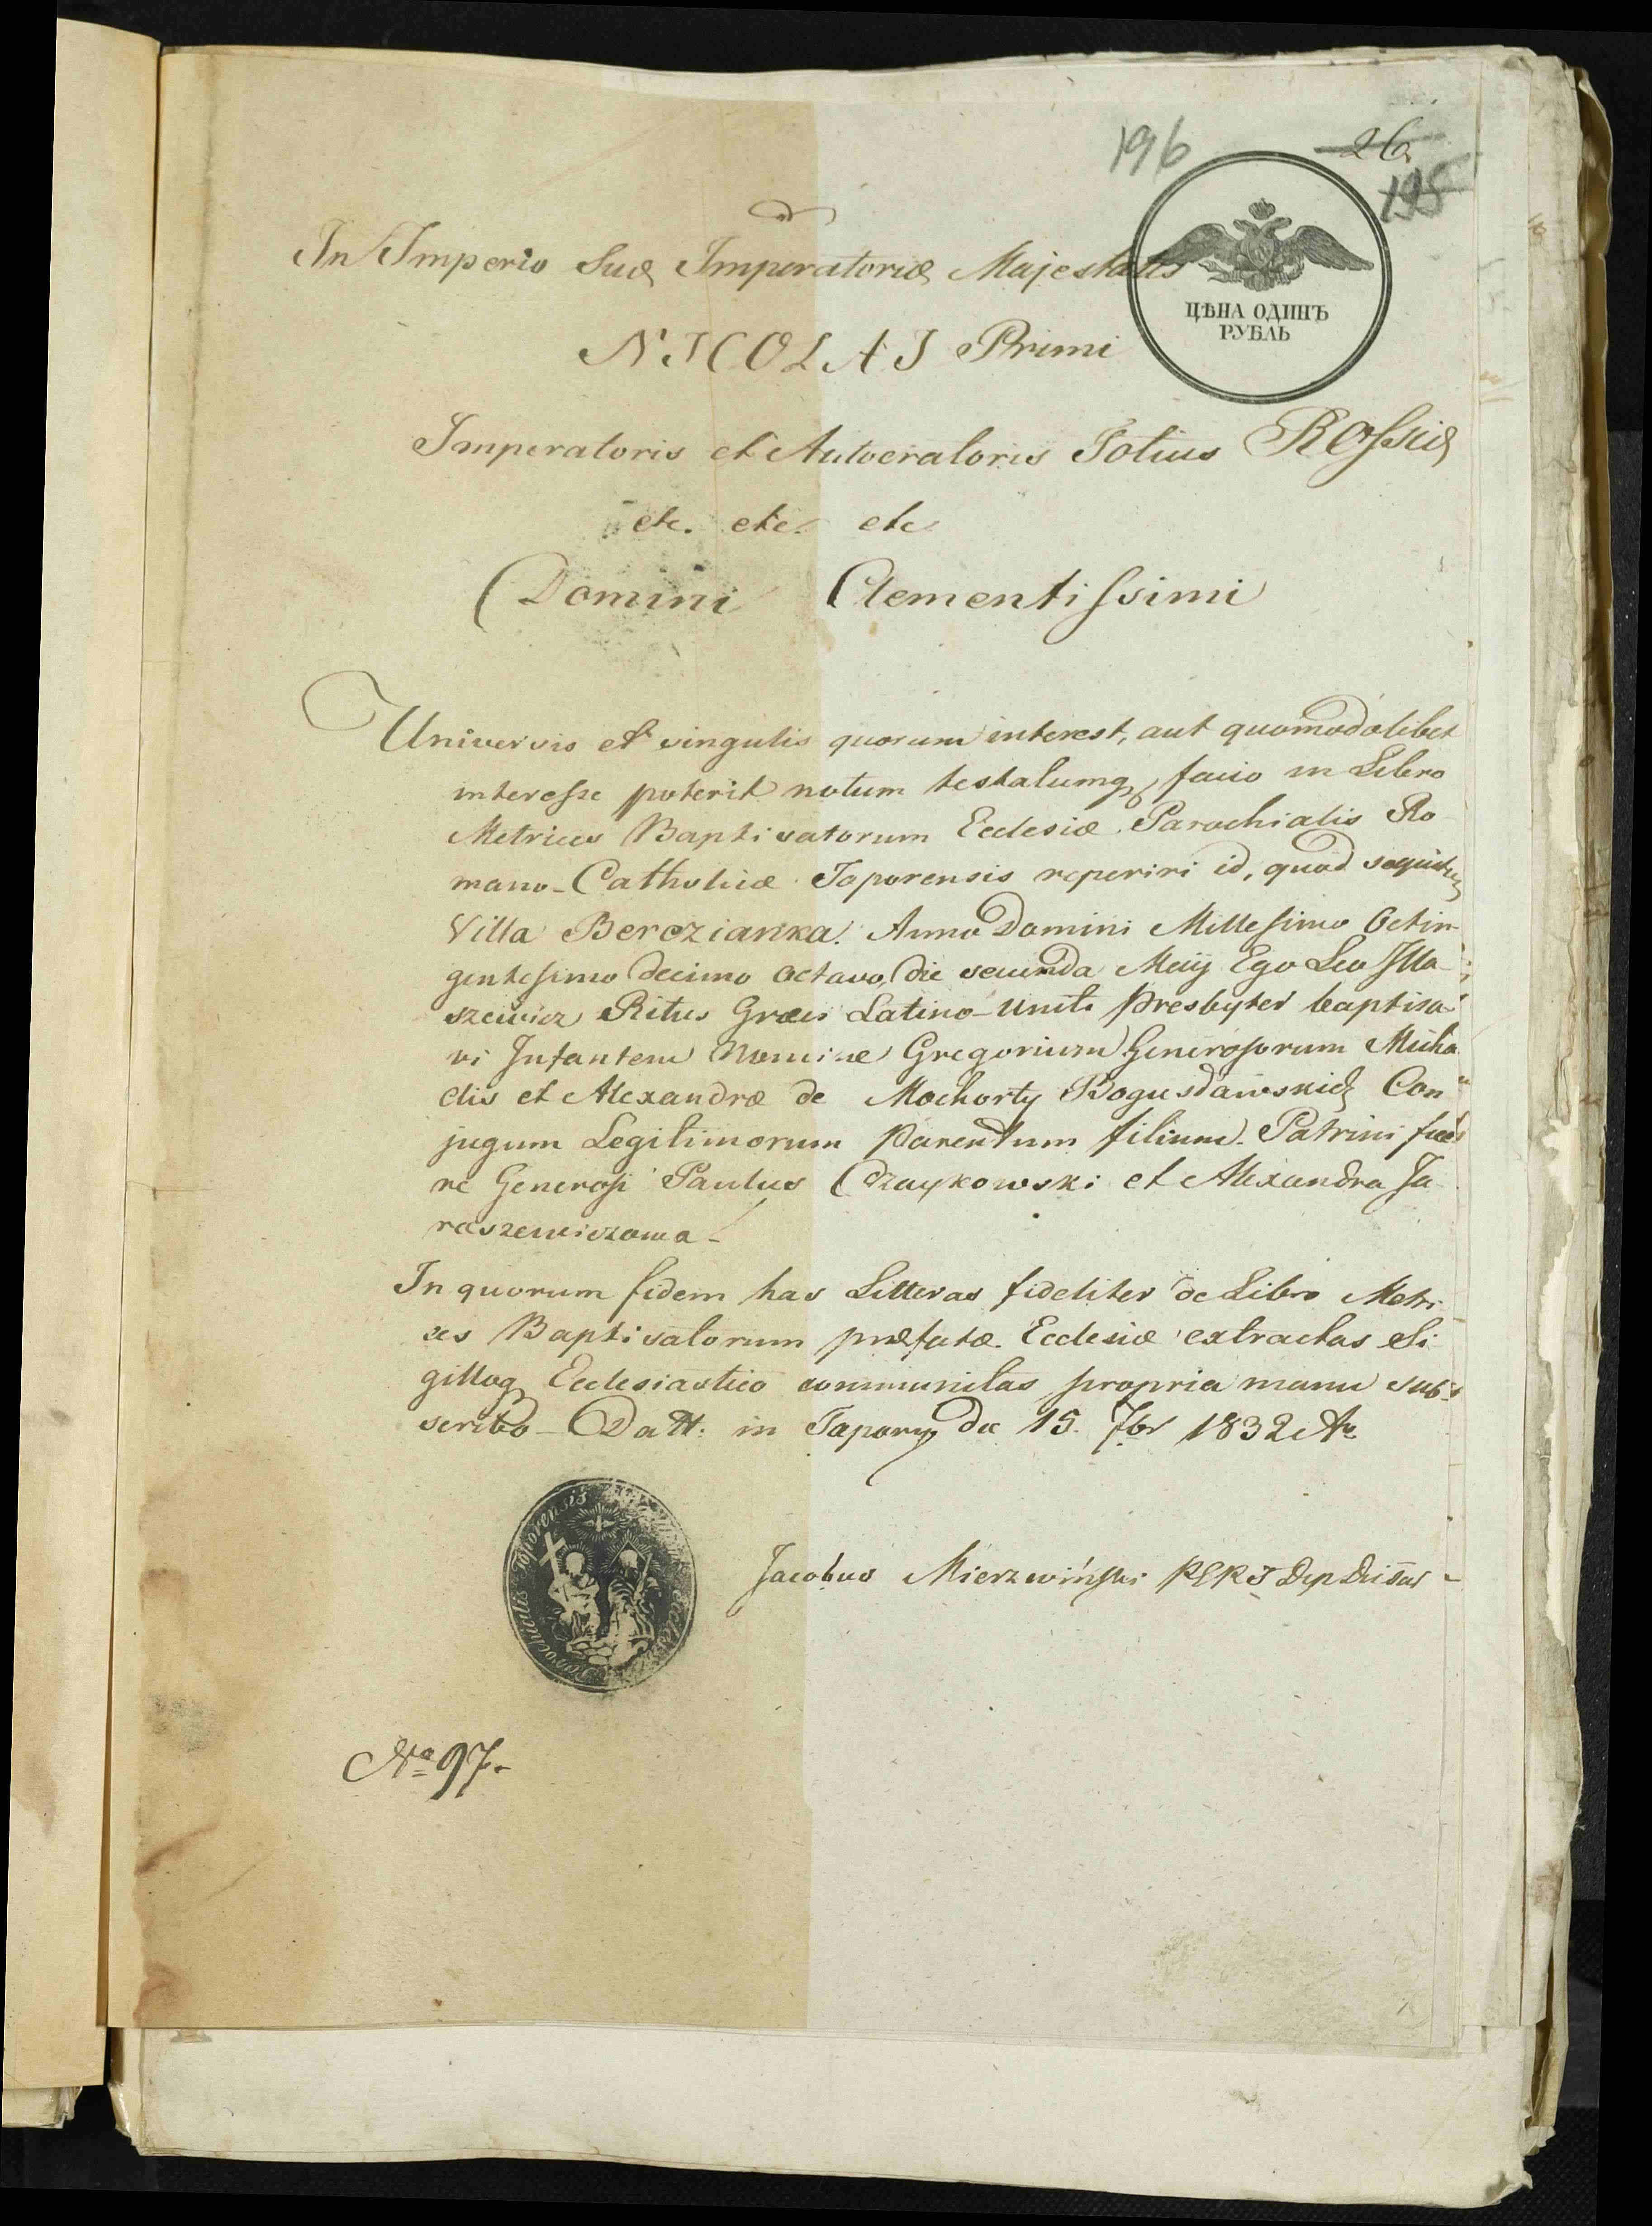 196
26
195
ЦѢНА ОДИНЪ
РУБЛЬ
In Imperio Suæ Imperatoriæ Majestatis
NICOLAI Primi
Imperatoris et Autocratoris Totius Rossiæ
etc. etc. etc
Domini Clementissimi
Universis et singulis quorum interest, aut quomodolibet
interesse poterit notum testatumq, facio in Libro
Metrices Baptisatorum Ecclesiæ Parochialis Ro
mano-Catholicæ Toporensis reperiri id, quod sequitur
Villa Berezianka. Anno Domini Millesimo Octin
gentesimo decimo octavo, die secunda Maij Ego Leo Illa-
szewicz Ritus Græci Latino-Uniti Presbyter baptisa
vi Infantem Nomine Gregorium Generosorum Micha
elis et Alexandræ de Mochorty Bogusławskich Con
jugum Legitimorum Parentum filium. Patrini fue
re Generosi Paulus Czaykowski et Alexandra Ja
raszewiczowa -
In quorum fidem has Litteras fideliter de Libro Metri
ces Baptisatorum præfatæ Ecclesiæ extractas Si
gilloq Ecclesiastico communitas propria manu sub
scribo - Datt: in Topory die 15. 7br 1832 Ao
Parochialis Toporensis
Jacobus Mierzwiński
No 97.